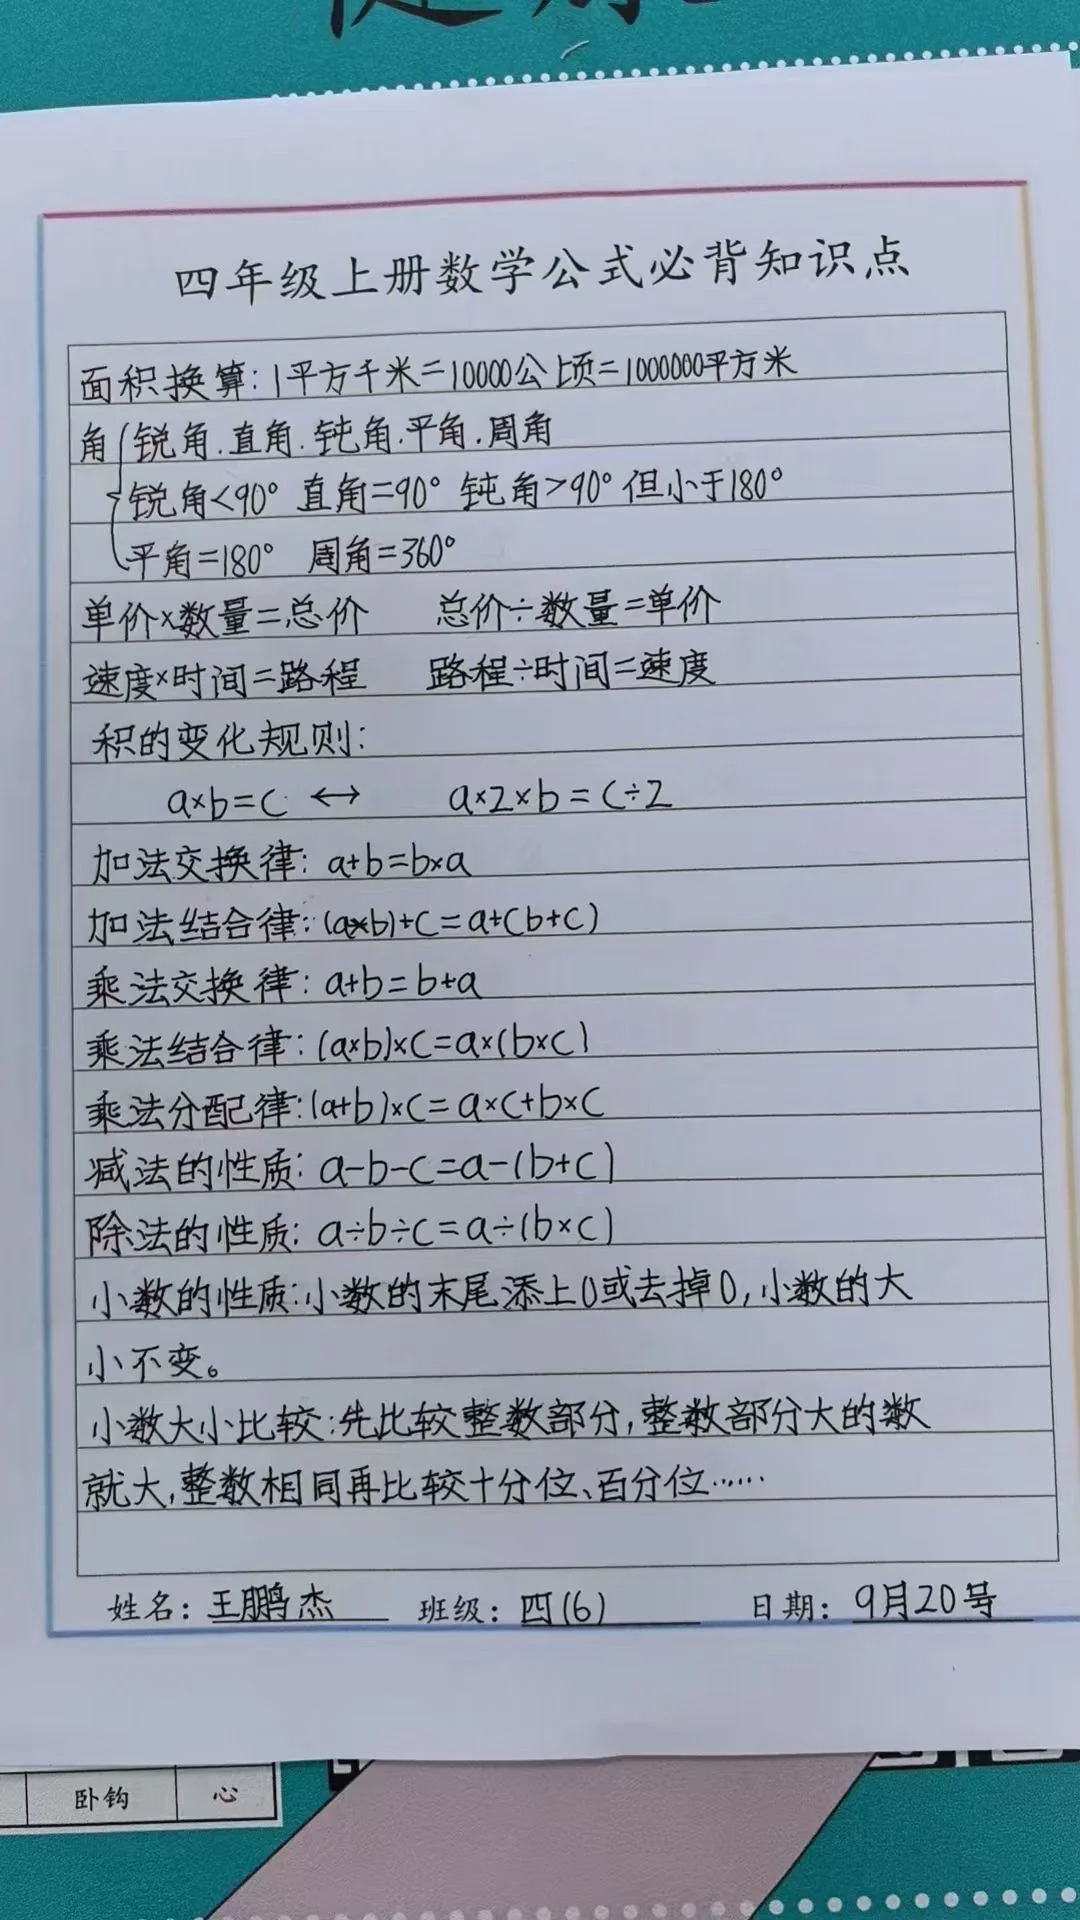 四年级上册数学公式必背知识点
面积换算:1平方千米=10000公顷=1000000平方米
角{锐角.直角.钝角.平角.周角
锐角<90° 直角=90° 钝角>90°但小于180°
平角=180° 周角=360°
单价×数量=总价 总价÷数量=单价
速度×时间=路程 路程÷时间=速度
积的变化规则:
a×b=c ↔ a×2×b=c÷2
加法交换律:a+b=b×a
加法结合律:(a×b)+c=a+(b+c)
乘法交换律:a+b=b+a
乘法结合律:(a×b)×c=a×(b×c)
乘法分配律:(a+b)×c=a×c+b×c
减法的性质:a-b-c=a-(b+c)
除法的性质:a÷b÷c=a÷(b×c)
小数的性质:小数的末尾添上0或去掉0,小数的大
小不变。
小数大小比较:先比较整数部分,整数部分大的数
就大,整数相同再比较十分位、百分位……
姓名:王鹏杰 班级:四(6) 日期:9月20号
卧钩 心